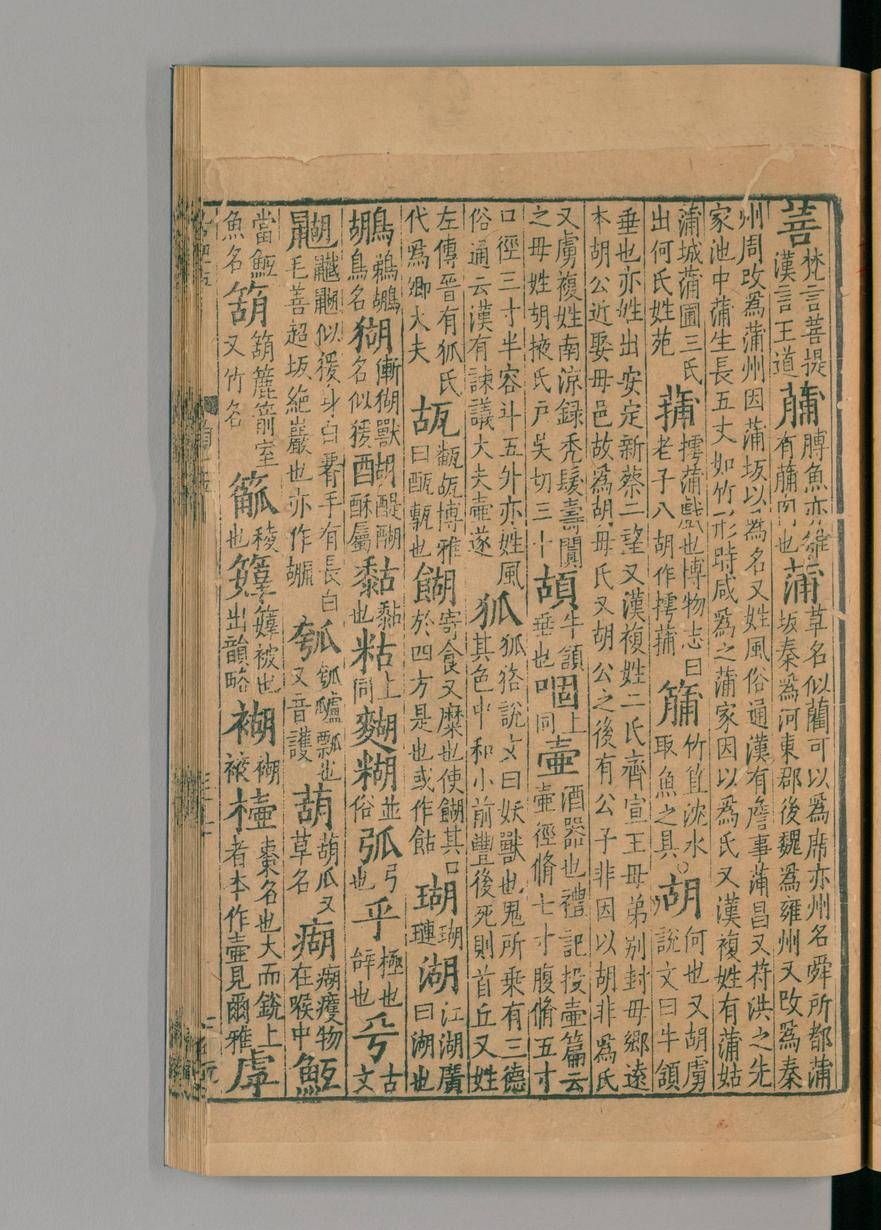 菩梵言菩提漢言王道膊魚亦有也蒲草名似藺可以爲席亦州名舜所都蒲坂秦爲河東郡後魏爲雍州又攺爲秦
州周攺爲蒲州因蒲坂以爲名又姓風俗通漢有詹事蒲昌又苻洪之先家池中蒲生長五丈如竹形時咸爲之蒲家因以爲氏又漢複姓有蒲姑
蒲城蒲圃三氏出何氏姓苑蒱摴蒱戲也博物志曰老子入胡作摴蒱竹笪沈水取魚之具。胡何也又胡虜說文曰牛頷
垂也亦姓出安定新蔡二望又漢複姓二氏齊宣王母弟別封母鄉遠本胡公近娶母邑故爲胡母氏又胡公之後有公子非因以胡非爲氏
又虜複姓南涼録禿髮壽闐之母姓胡掖氏戸吳切三十頡牛頷垂也上同壷酒器也禮記投壷篇云壷徑脩七寸腹脩五寸
口徑三寸半容斗五升亦姓風俗通云漢有諫議大夫壷遂狐狐狢說文曰妖獸也鬼所乗有三德其色中和小前豐後死則首丘又姓
左傳晉有狐氏代爲卿大夫瓳瓳博雅曰甎也餬寄食又糜也使餬其口於四方是也或作䬢瑚瑚璉湖江湖廣曰湖也
鶘鵜鶘鳥名猢猢獸名似猨醐醍醐酥屬黏也粘上同糊並俗弧弓也乎極也辝也兮古文
似猨身白手有長白毛善超坂絶巖也亦作瓠瓠𤬛瓢也又音護葫葫瓜又草名瘊物在喉中魱
當魱魚名箶箶簏箭室又竹名𥬔稜也䉉被也出韻略䄮衤䄮被棗名也大而銳上者本作壷見爾雅虖